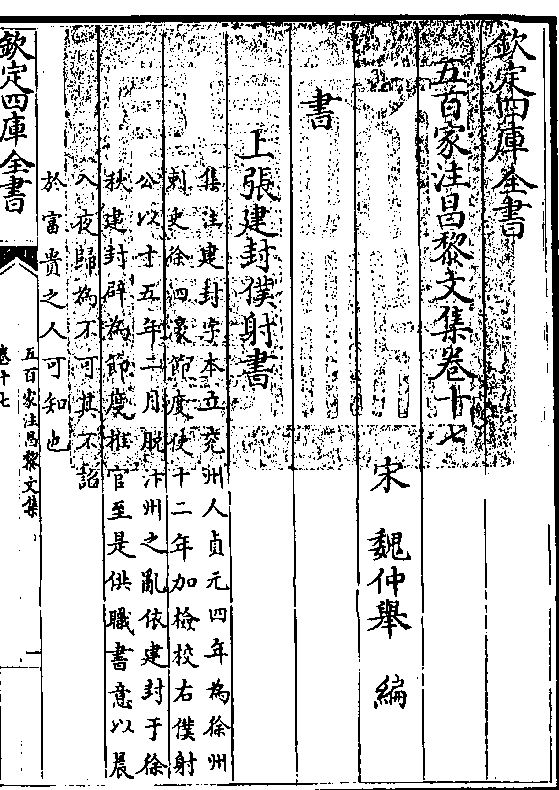 欽定四庫全書
五百家注昌黎文集卷十七
宋 魏仲舉 編
書
上張建封僕射書
集注建封字本立兖州人貞元四年為徐州
刺史徐泗濠節度使十二年加檢校右僕射
公以十五年二月脱汴州之亂依建封于徐
秋建封辟為節度推官至是供職書意以晨
入夜歸為不可其不諂
於富貴之人可知也
欽定四庫全書
五百家注昌黎文集
卷十七
一